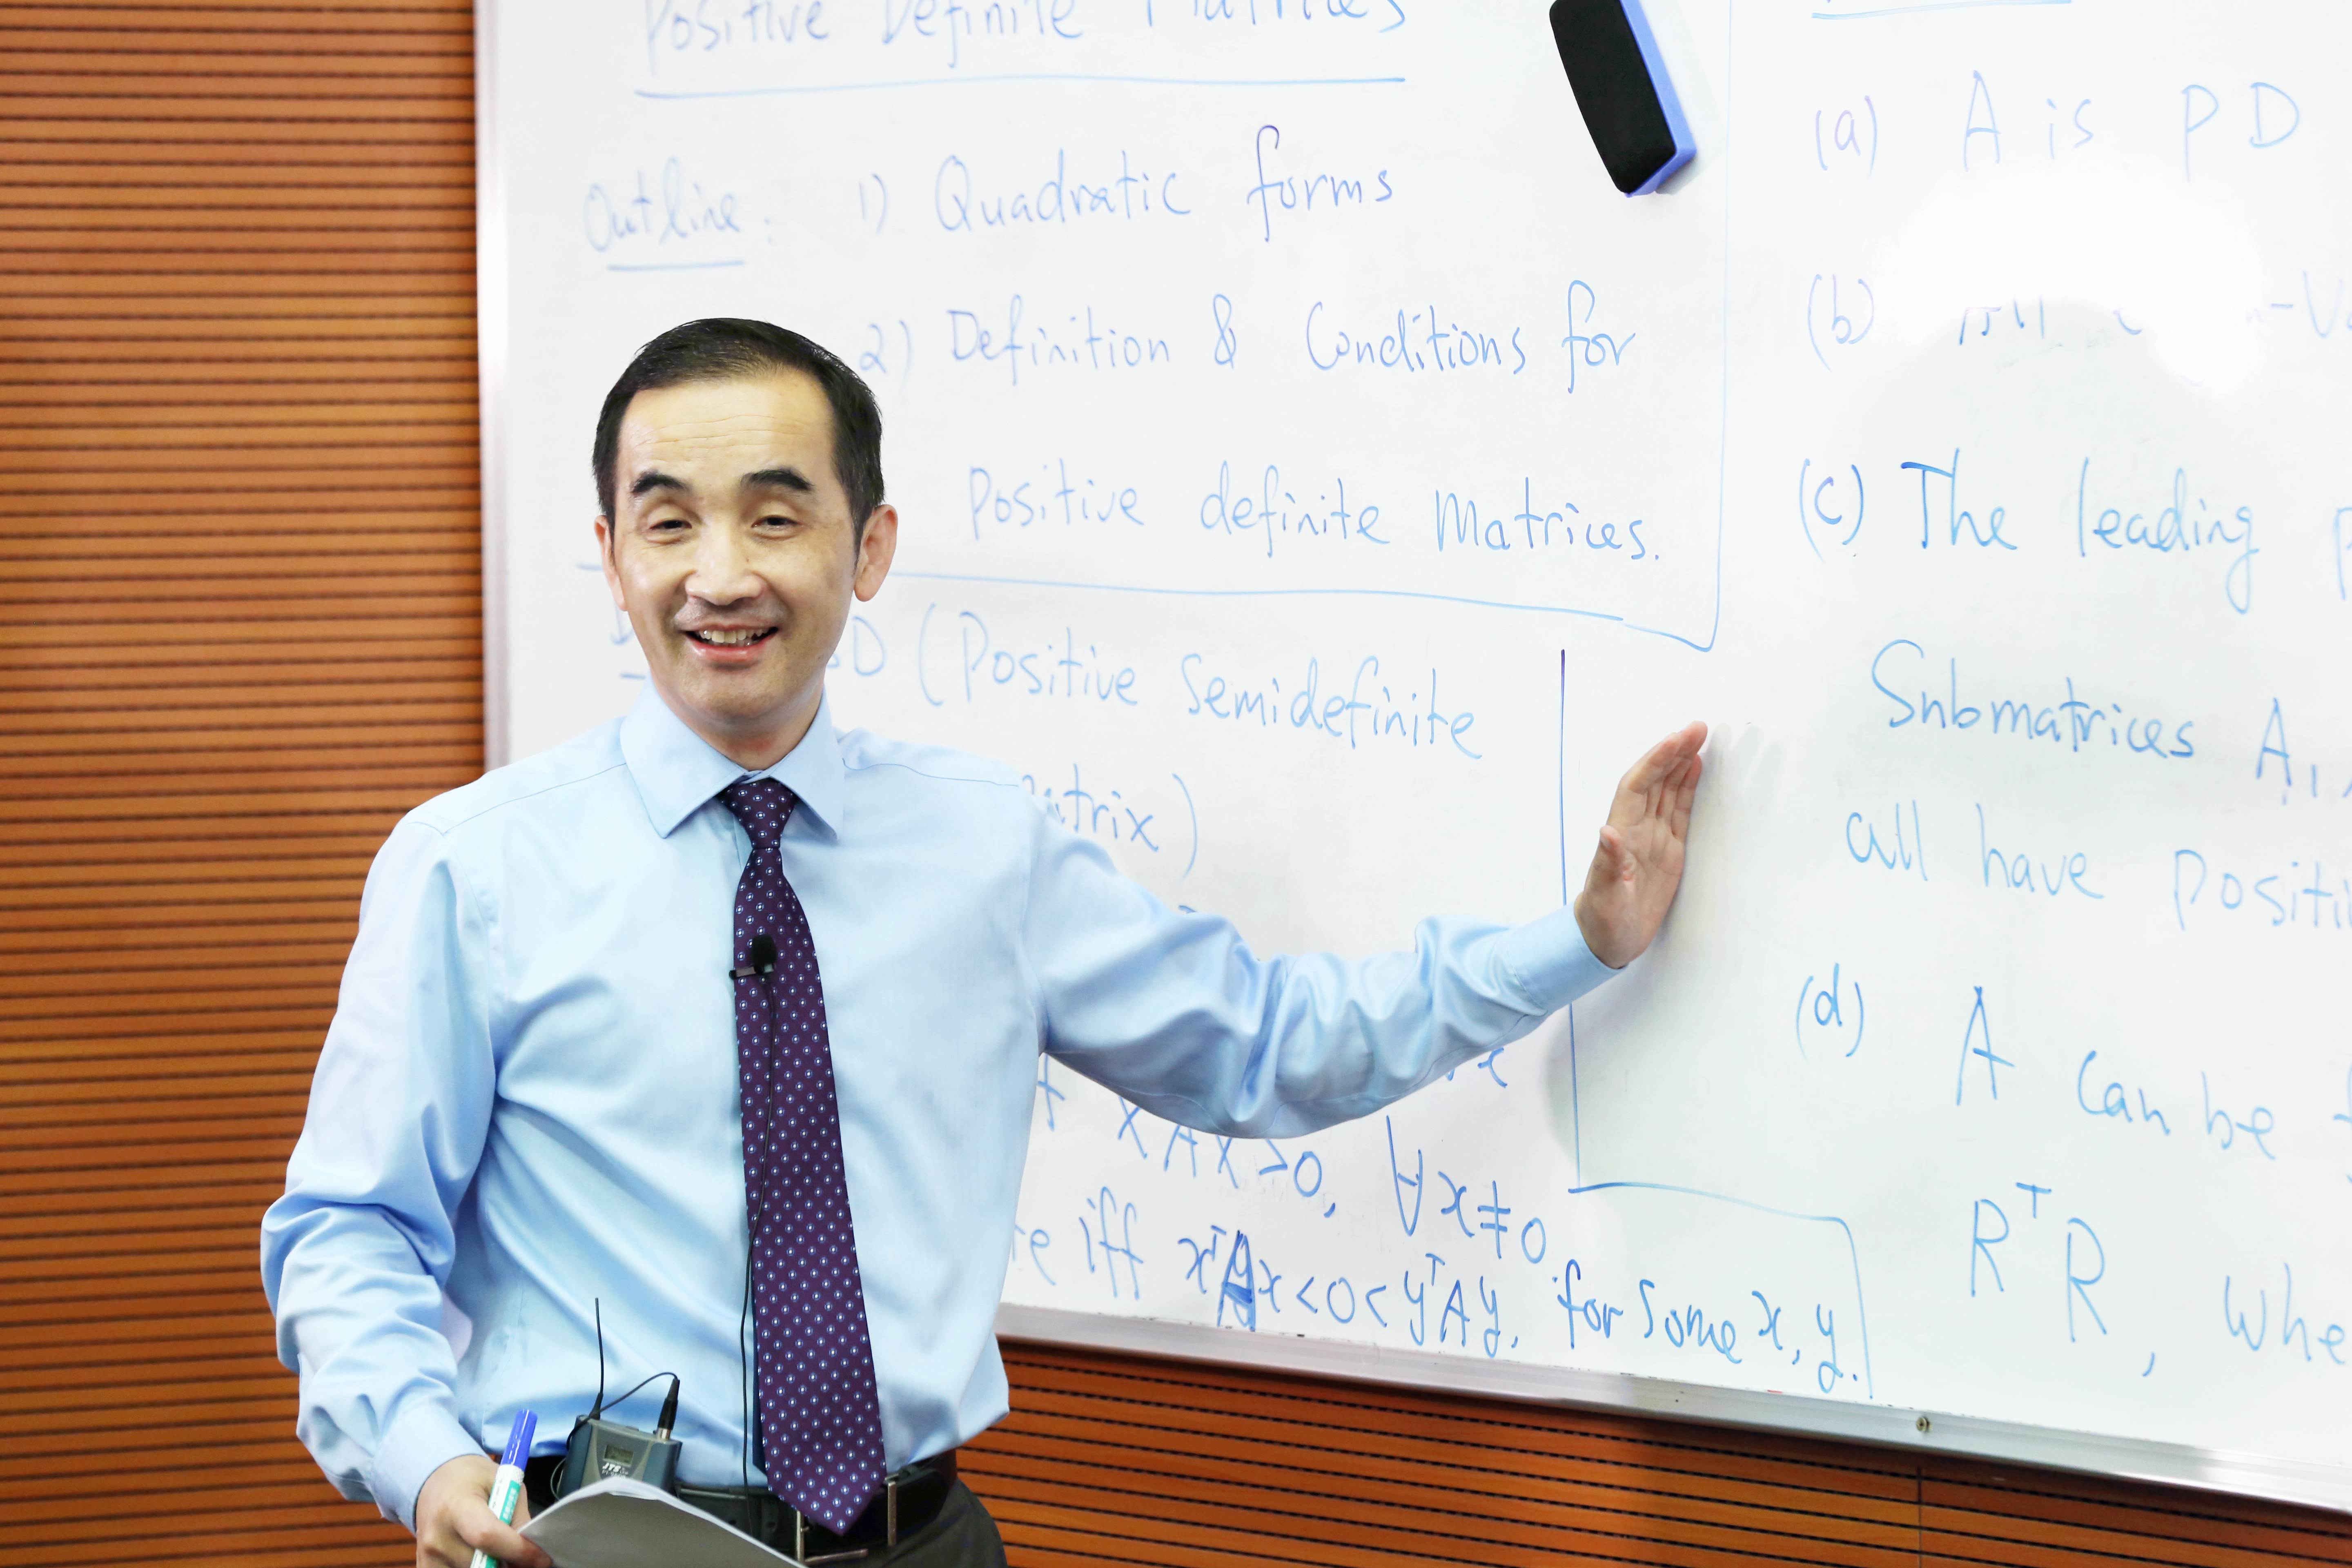 Positive Definite Matrices
Outline: 1) Quadratic forms
2) Definition & Conditions for
Positive definite Matrices.
(Positive Semidefinite
)
x A x > 0, ∀ x ≠ 0
iff xᵀAx < 0 < yᵀAy, for some x, y.
(a) A is PD
(b) All
(c) The leading
Submatrices A₁,
all have
(d) A can be
RᵀR,
JTS